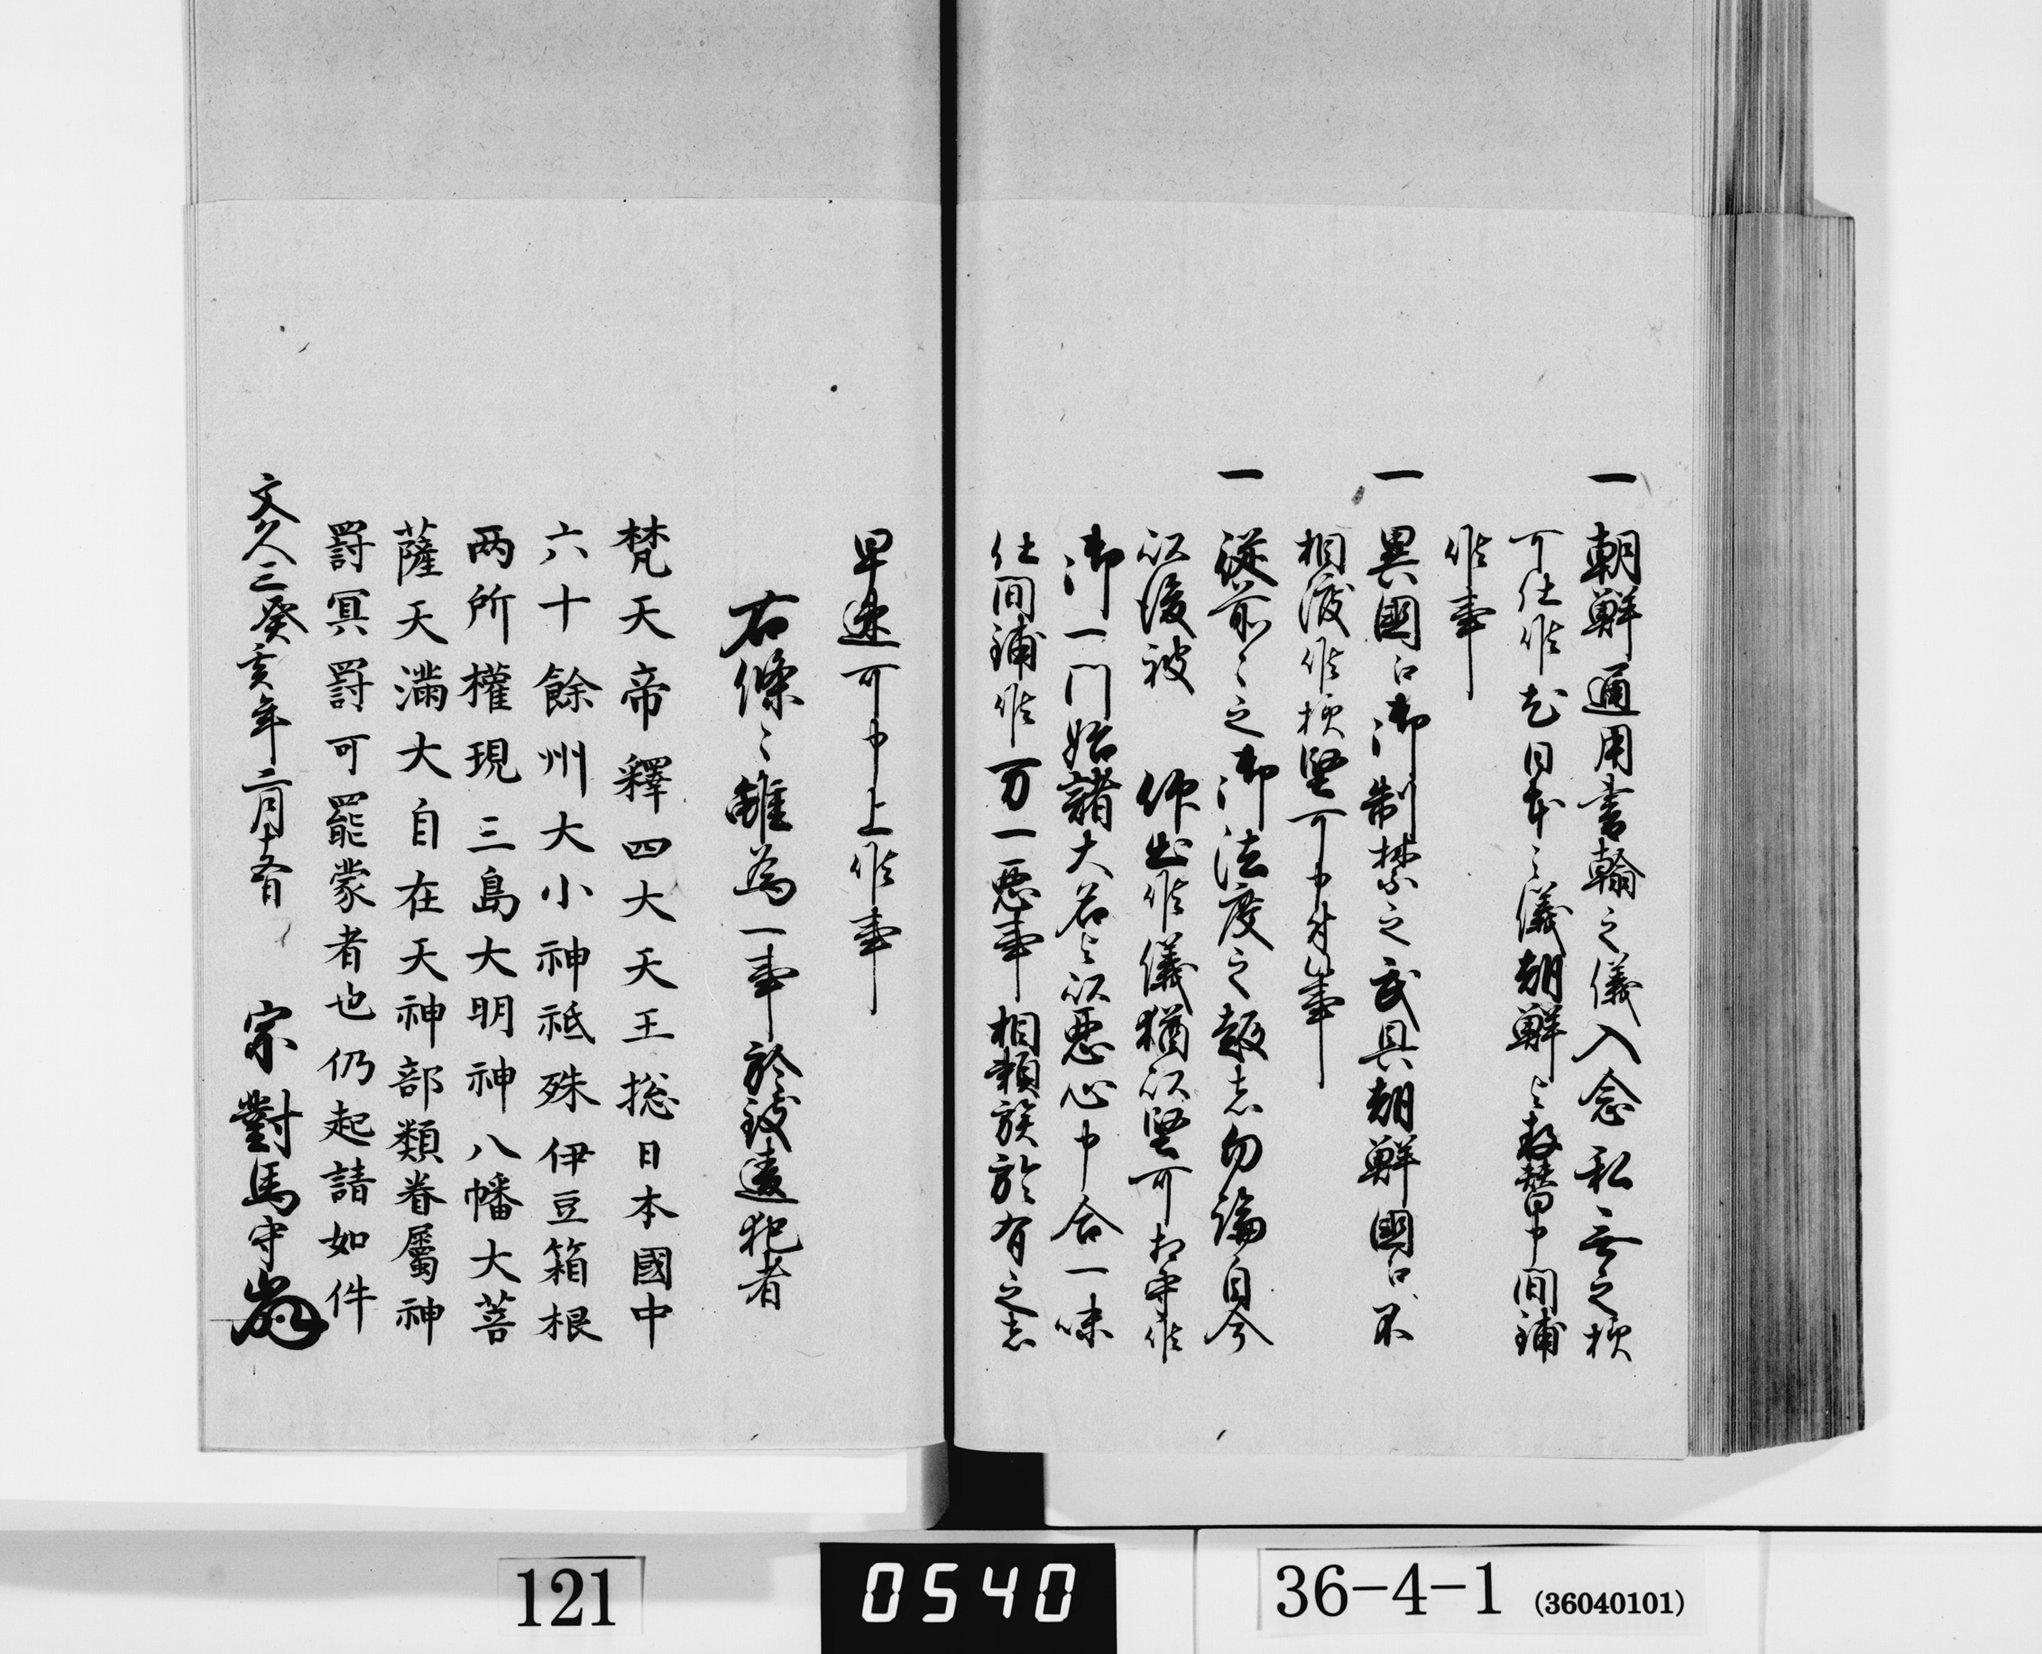 一朝鮮通用書翰之儀入念私無之様
可仕候尤日本之儀朝鮮与数替申間鋪
候事
一異國江御制禁之武具朝鮮國江不
相渡候様堅可申付事
一従前々之御法度之趣者勿論自今
以後被　仰出候儀猶以堅可相守候
御一門始諸大名与以悪心申合一味
仕間鋪候万一悪事相頼族於有之者
早速可申上候事
右條々雖為一事於致違犯者
梵天帝釋四大天王総日本國中
六十餘州大小神祇殊伊豆箱根
两所權現三島大明神八幡大菩
薩天滿大自在天神部類眷屬神
罸冥罸可罷蒙者也仍起請如件
文久三癸亥年二月十五日　宗對馬守
121
0540
36-4-1 (36040101)